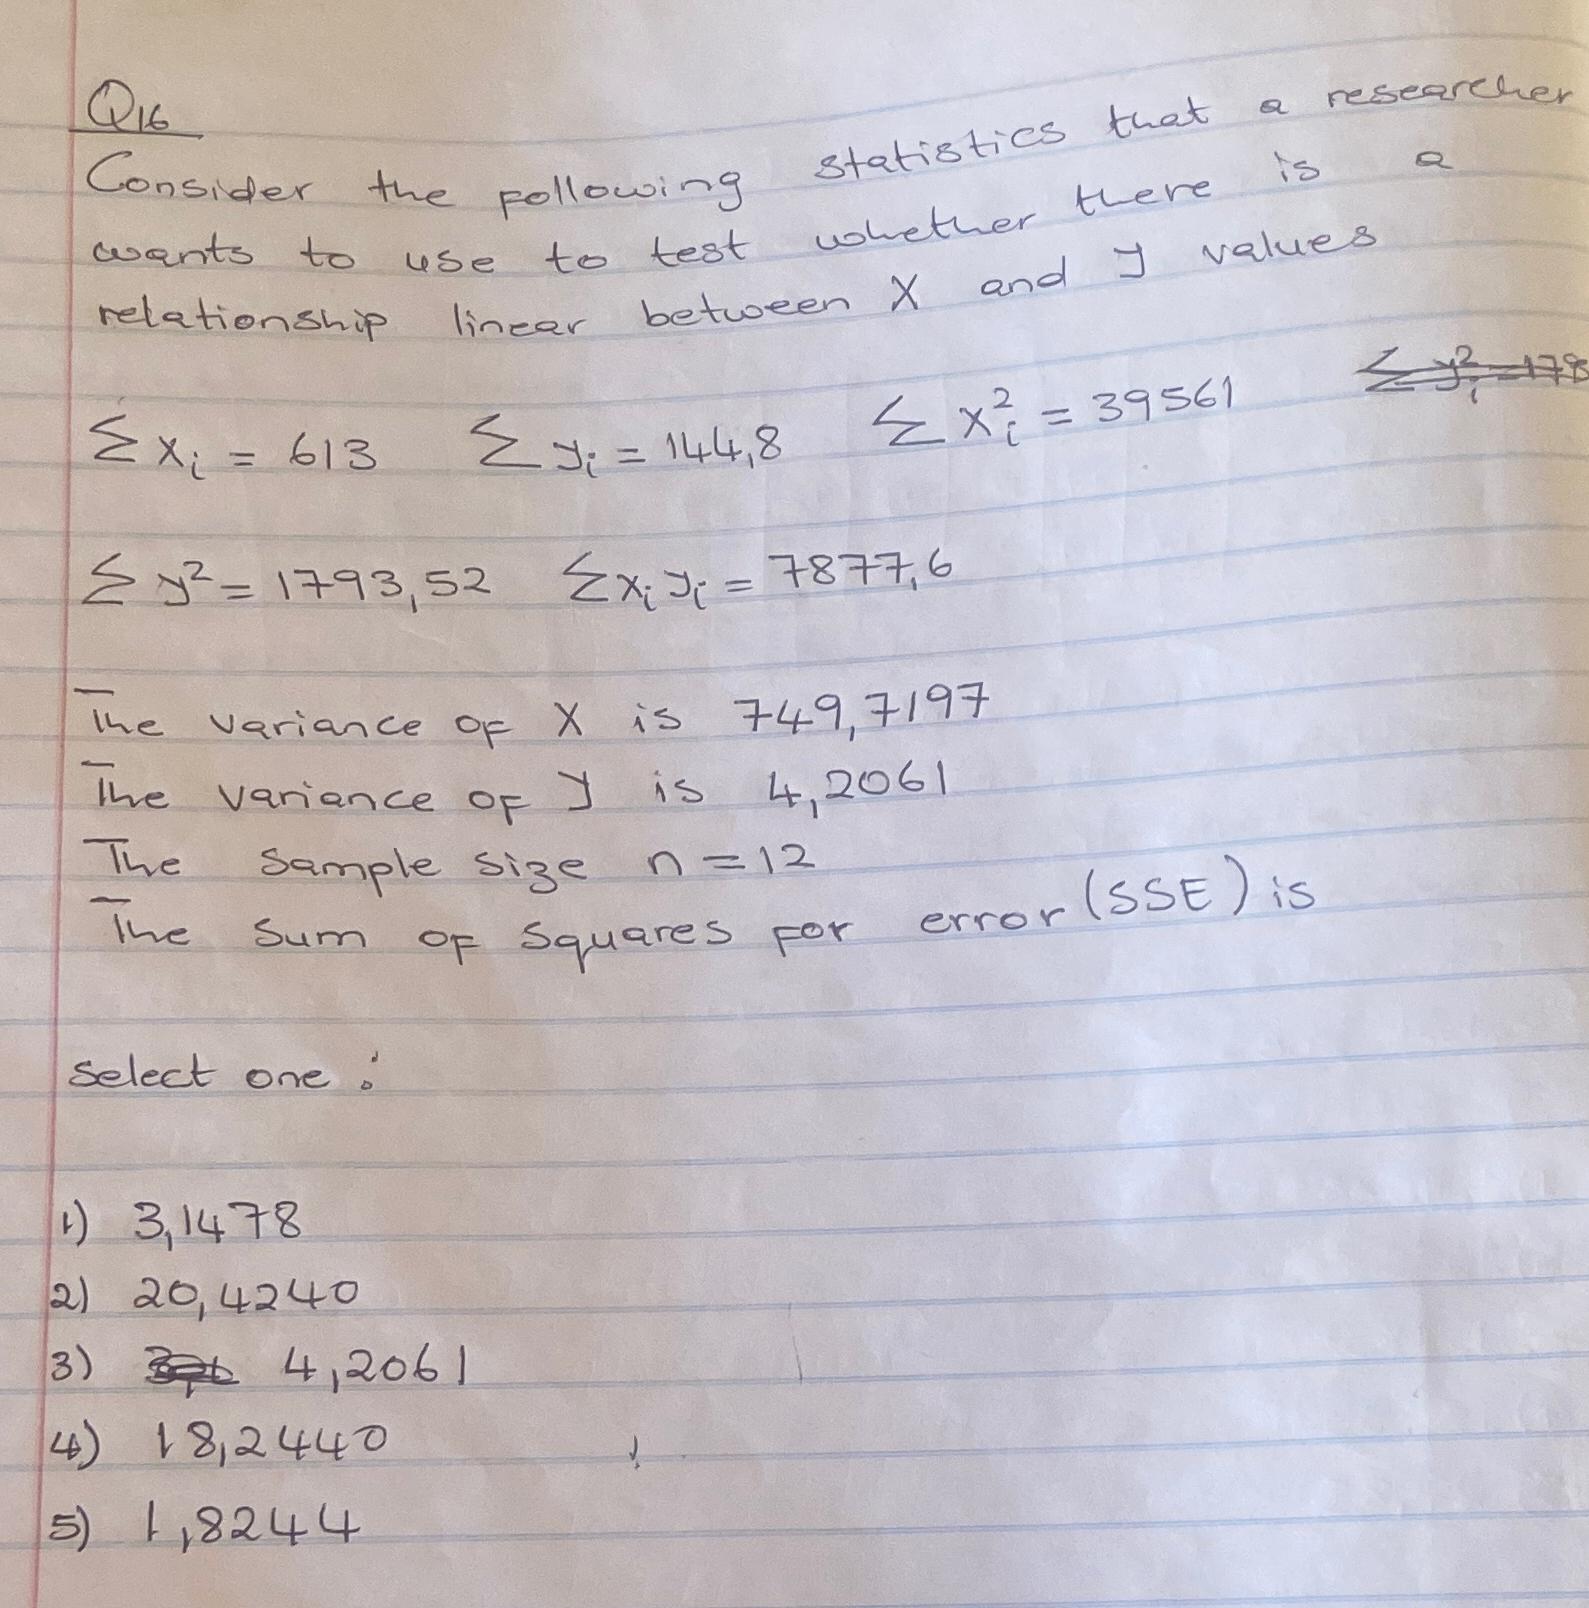 Q16
Consider the following statistics that a researcher
wants to use to test whether there is a
relationship linear between X and Y values
∑ xᵢ = 613 ∑ yᵢ = 144,8 ∑ xᵢ² = 39561
∑ y² = 1793,52 ∑ xᵢ yᵢ = 7877,6
The variance of X is 749,7197
The variance of Y is 4,2061
The sample size n = 12
The sum of squares for error (SSE) is
select one :
1) 3,1478
2) 20,4240
3) 4,2061
4) 18,2440
5) 1,8244